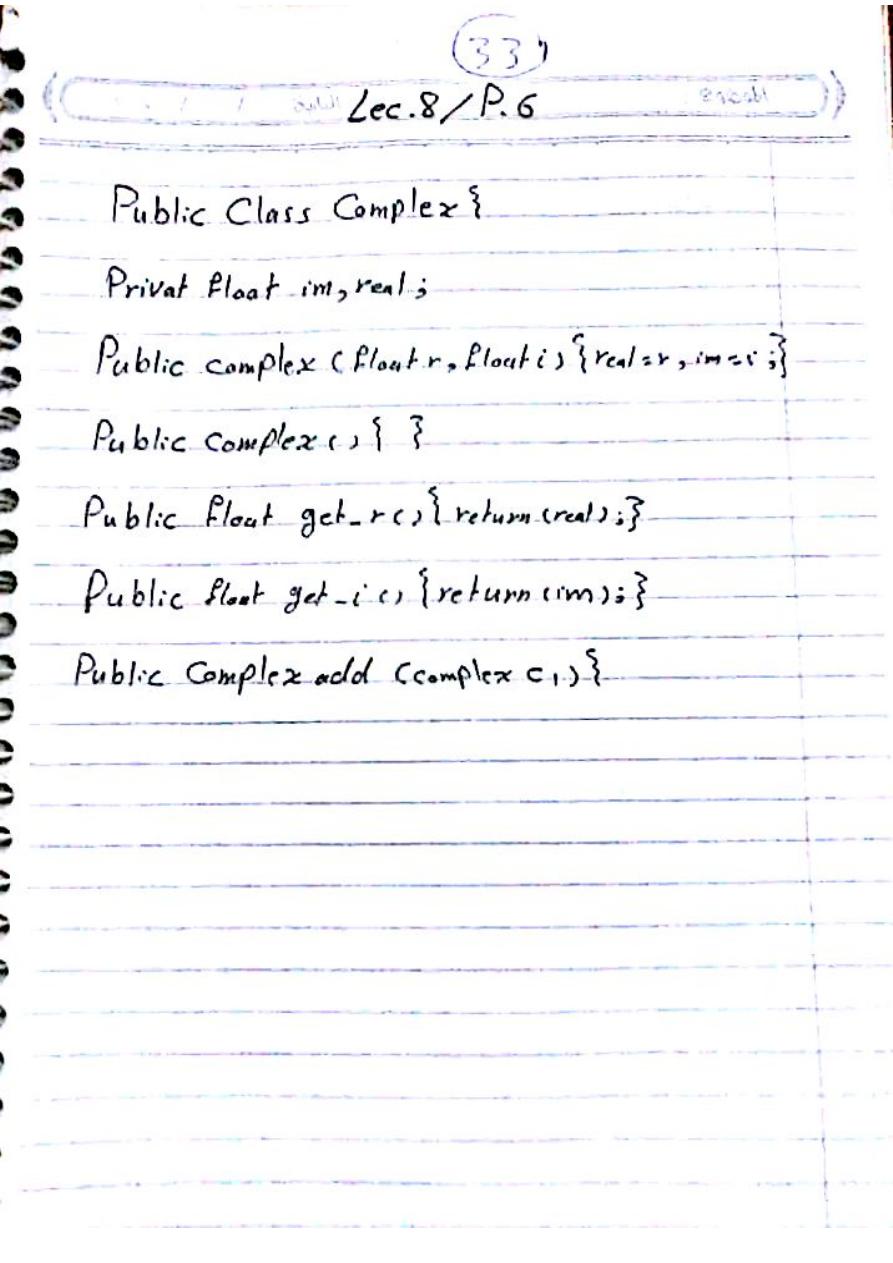 33
Lec.8/P.6
Public Class Complex{
Privat float im, real;
Public complex (float r, float i) {real=r, im=i;}
Public complex () { }
Public float get_r() { return (real);}
Public float get_i () {return (im);}
Public Complex add (complex c1) {